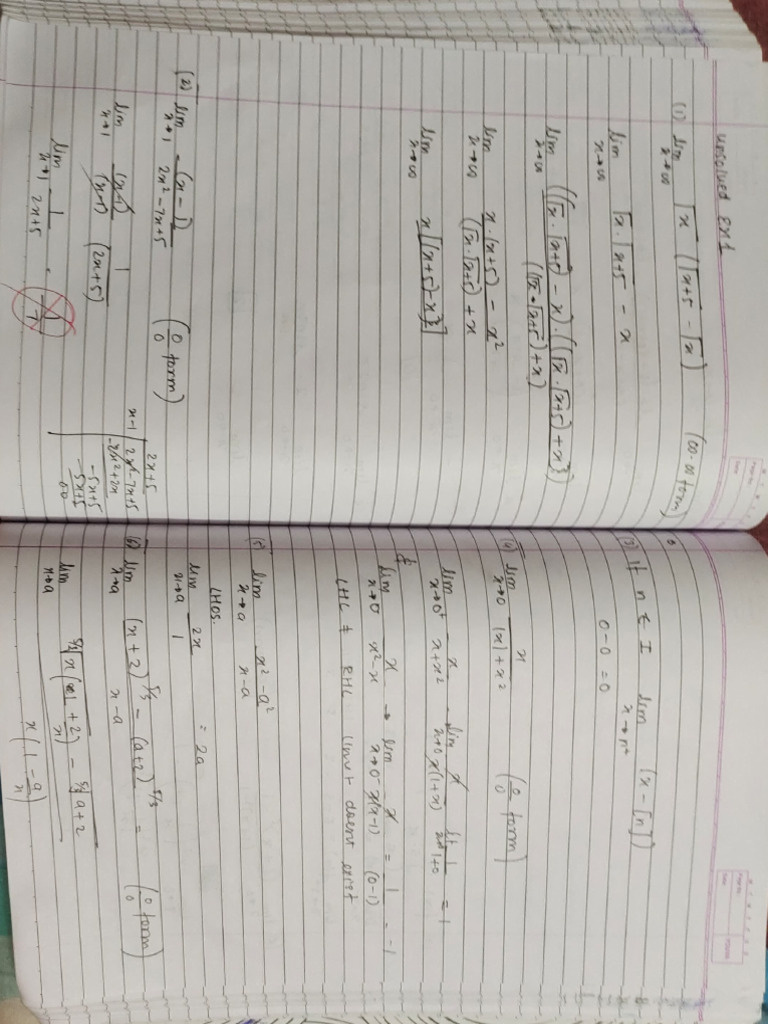 unsolved Ex 1
(1) lim x→∞ √x (√x+5 - √x) (∞-∞ form)
lim x→∞ √x . √x+5 - x
lim x→∞ ((√x . √x+5) - x) . ((√x . √x+5) + x}) / ((√x . √x+5) + x)
lim x→∞ x . (x+5) - x² / (√x . √x+5) + x
lim x→∞ x[(x+5) - x}]
(2) lim x→1 -(x-1) / 2x² - 7x+5 (0/0 form)
lim x→1 (x-1) / (x-1) 1 / (2x+5)
lim x→1 - 1 / 2x+5
2x+5
x-1 2x² - 7x+5
-2x² + 2x
-5x+5
-5x+5
00
(3) If n ∈ I lim x→n⁺ (x - [n])
0 - 0 = 0
(4) lim x→0 x / |x| + x² (0/0 form)
lim x→0⁺ x / x + x² lim x→0 x / x(1+x) lt 1 / 1+0 = 1
&
lim x→0⁻ x / x² - x → lim x→0⁻ x / x(x-1) = 1 / (0-1) = -1
LHL ≠ RHL limit doesnt exist
(5) lim x→a x² - a² / x - a
LHOS.
lim x→a 2x / 1 = 2a
(6) lim x→a (x+2)^5/3 - (a+2)^5/3 / x - a = (0/0 form)
lim x→a
x (1 - a/x)